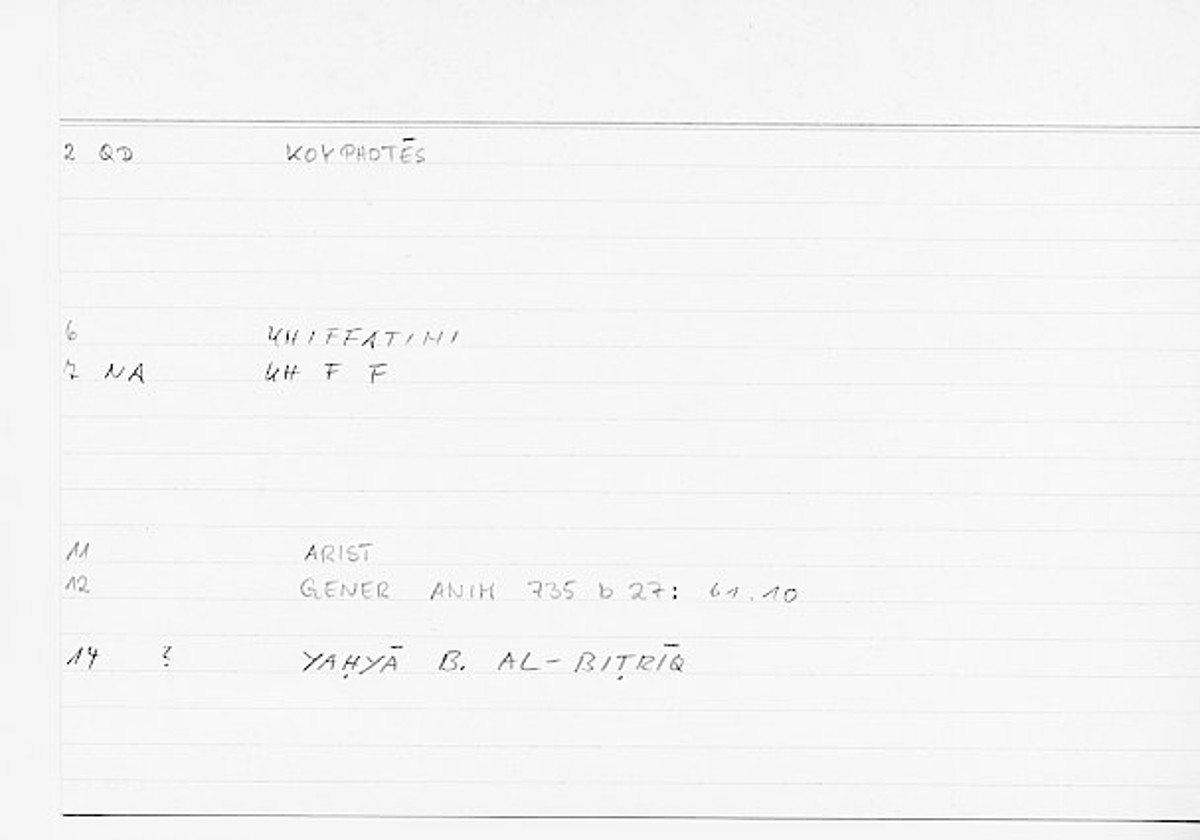 2 QD KOYPHOTĒS
6 KHIFFATIHI
7 NA KH F F
11 ARIST
12 GENER ANIM 735 b 27: 61.10
14 ? YAḤYĀ B. AL-BIṬRĪQ